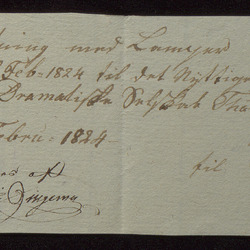 ning med Lamper
Feb - 1824 til det Nyttige
Dramatiske Selskab Tha
Febru - 1824
til
as af